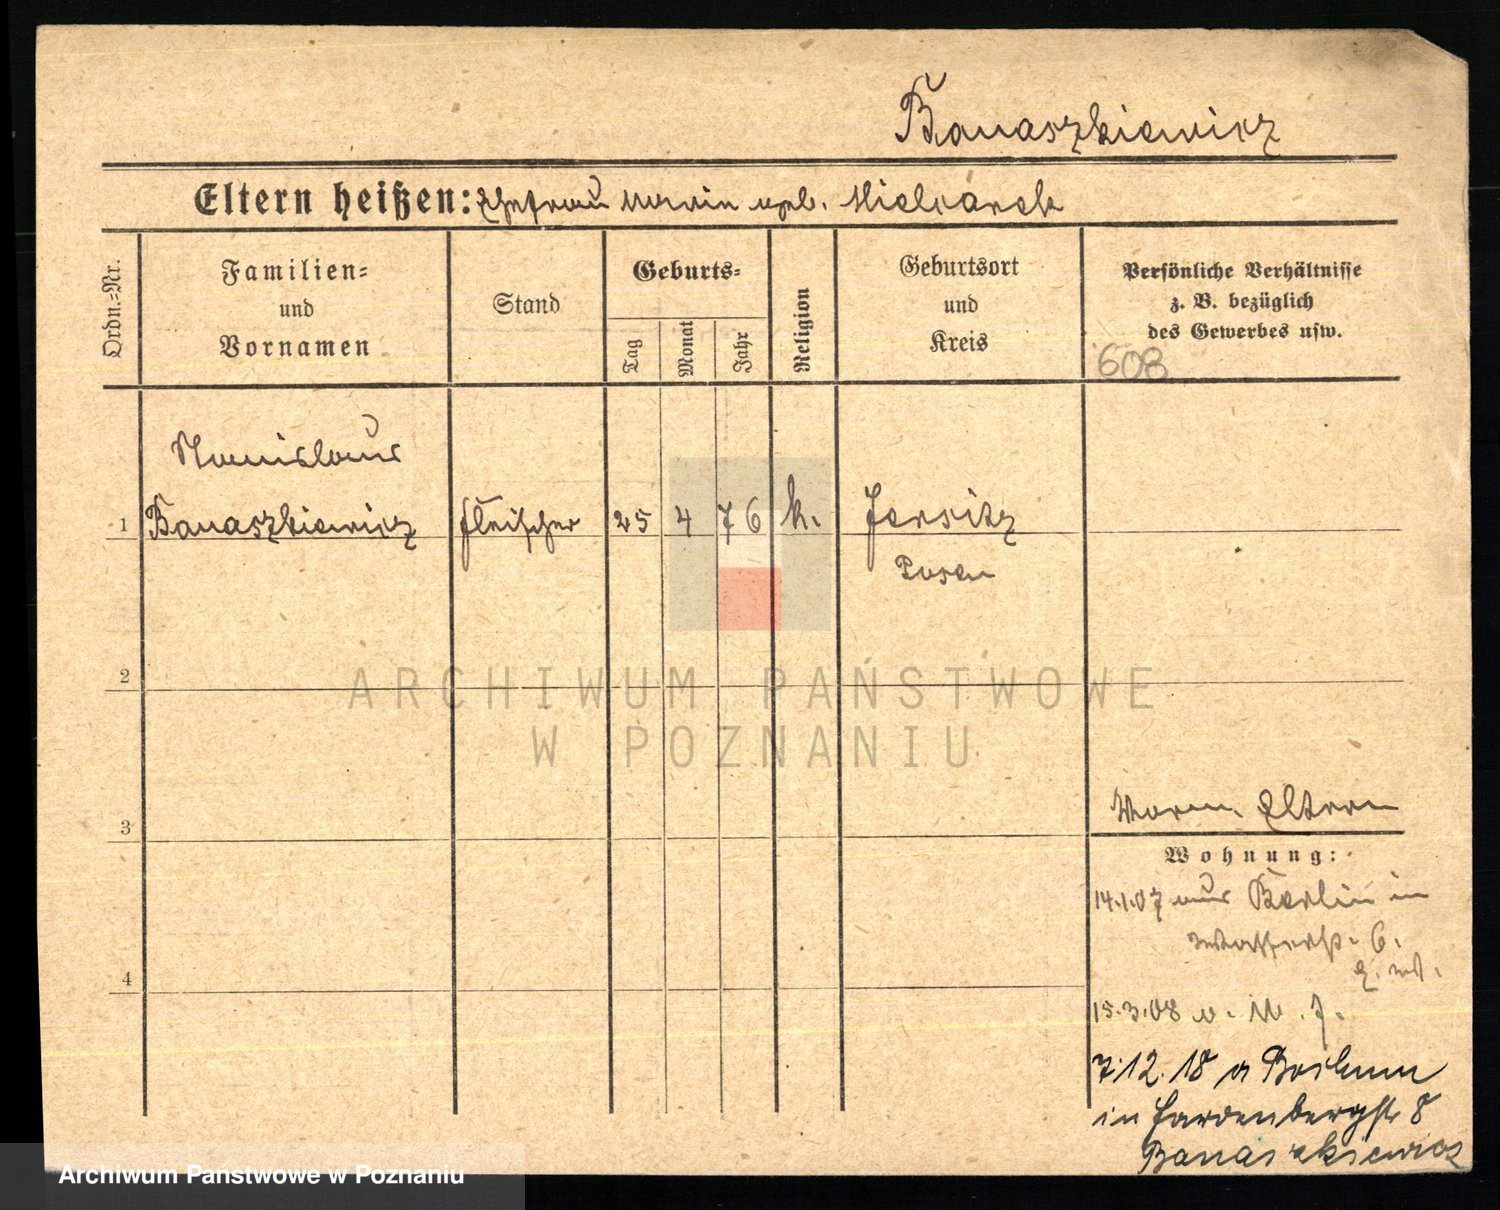 Banaszkiewicz
Eltern heißen: Ehefrau Marie geb. Mielcarek
Ordn.=Nr.
Familien=
und
Vornamen
Stand
Geburts=
Tag
Monat
Jahr
Religion
Geburtsort
und
Kreis
Persönliche Verhältnisse
z. B. bezüglich
des Gewerbes usw.
608
Stanislaus
1 Banaszkiewicz Fleischer 25 4 76 k. Jersitz
Posen
2
3
4
Eltern
Wohnung:
14.1.07 aus Berlin in
6.
15.3.08
7.12.18 a Bochum
in Hardenbergstr 8
Banaszkiewicz
ARCHIWUM PAŃSTWOWE
W POZNANIU
Archiwum Państwowe w Poznaniu